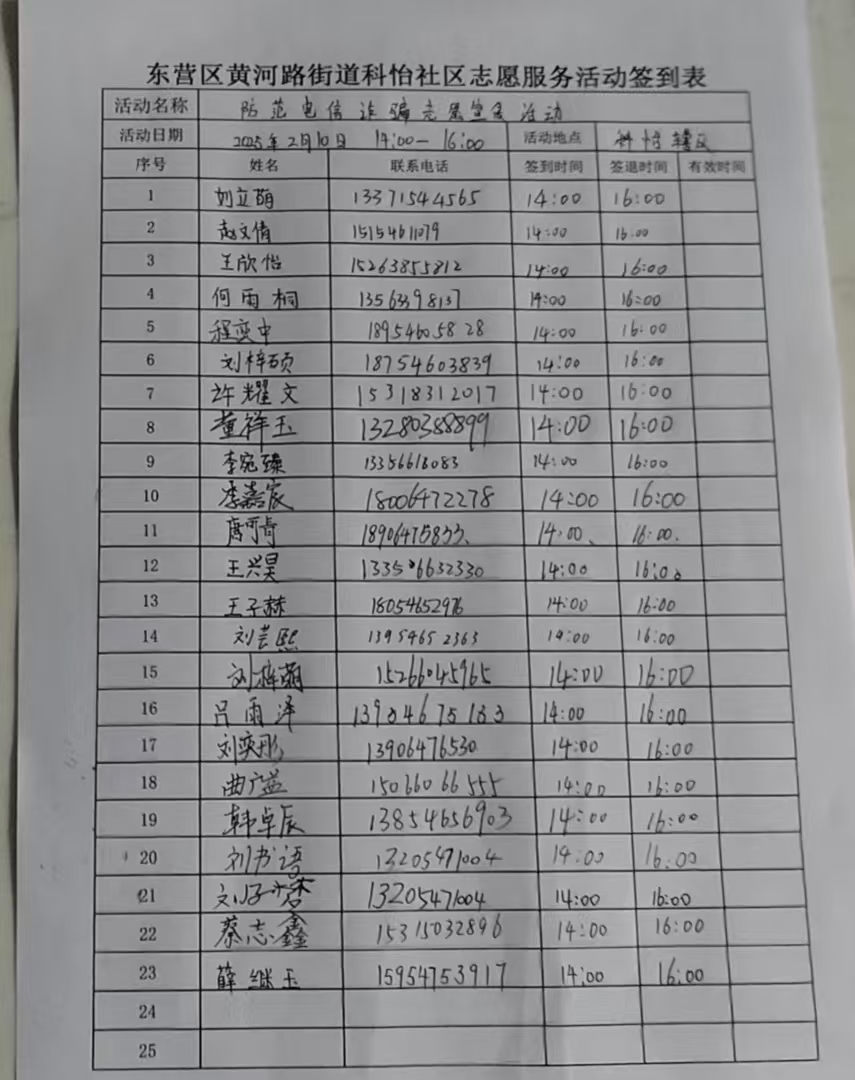 东营区黄河路街道科怡社区志愿服务活动签到表
活动名称 防范电信诈骗志愿宣传活动
活动日期 2025年2月10日 14:00—16:00 活动地点 科怡辖区
序号 姓名 联系电话 签到时间 签退时间 有效时间
1 刘立萌 13371544565 14:00 16:00
2 赵文倩 15154611079 14:00 16:00
3 王欣怡 15263855812 14:00 16:00
4 何雨桐 13563398137 14:00 16:00
5 程奕中 18954605828 14:00 16:00
6 刘梓硕 18754603839 14:00 16:00
7 许耀文 15318312017 14:00 16:00
8 董祥玉 13280388899 14:00 16:00
9 李宛臻 13356618083 14:00 16:00
10 李嘉宸 18006472278 14:00 16:00
11 唐可奇 18906475833 14:00 16:00
12 王兴昊 14:00 16:00
13 王子赫 18054652976 14:00 16:00
14 刘芸熙 13954652363 14:00 16:00
15 刘梓萌 15266045965 14:00 16:00
16 吕雨泽 14:00 16:00
17 刘奕彤 13906476530 14:00 16:00
18 曲广益 15066066555 14:00 16:00
19 韩卓辰 13854656903 14:00 16:00
20 刘书语 13205471004 14:00 16:00
21 13205471004 14:00 16:00
22 蔡志鑫 15315032896 14:00 16:00
23 薛继玉 15954753917 14:00 16:00
24
25